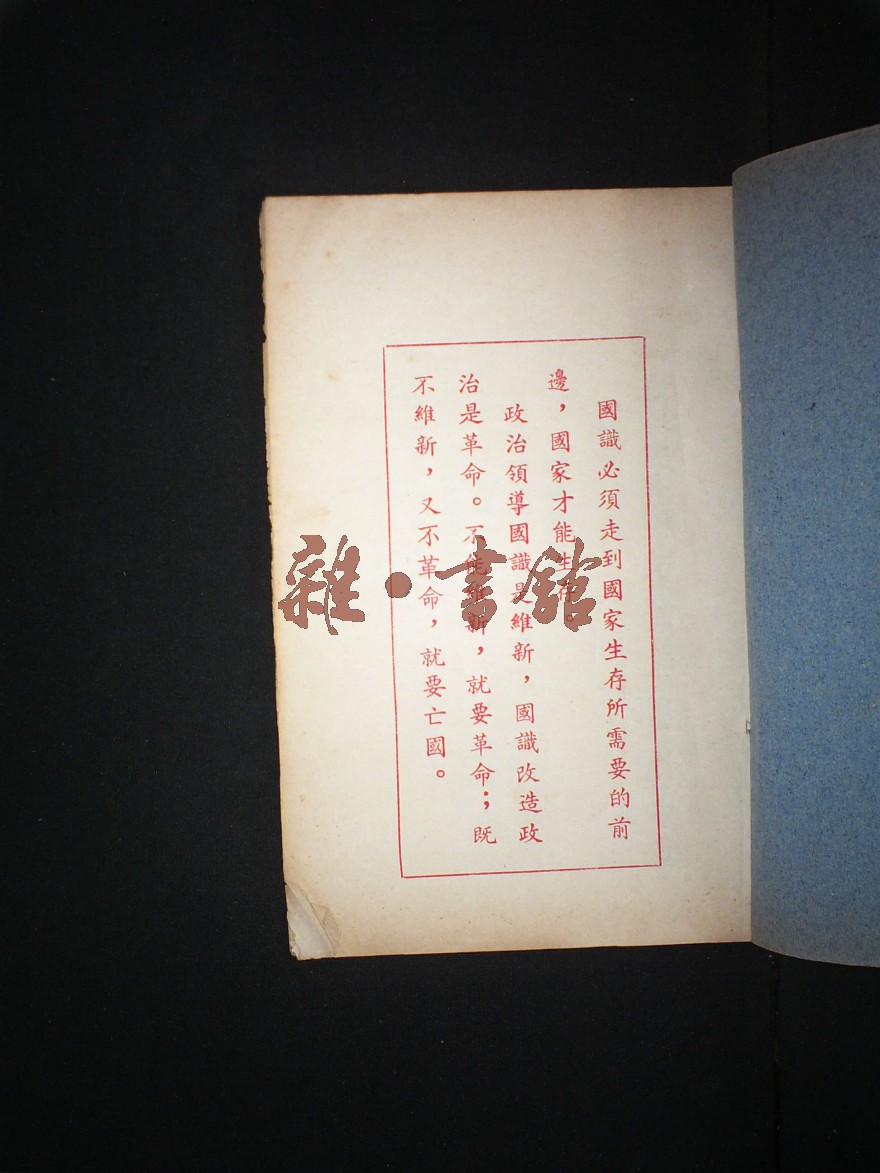 國識必須走到國家生存所需要的前
邊，國家才能生存。
政治領導國識是維新，國識改造政
治是革命。不能維新，就要革命；既
不維新，又不革命，就要亡國。
雜·書館